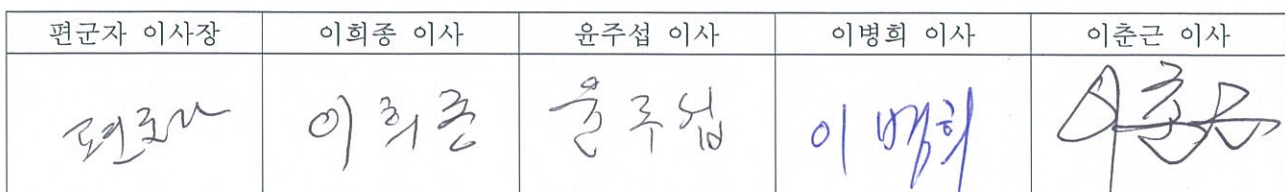 편군자 이사장 이희종 이사 윤주섭 이사 이병희 이사 이춘근 이사
편군자 이희종 윤주섭 이병희 이춘근